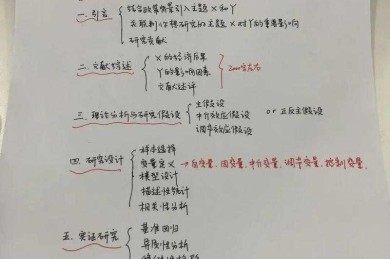 一.引言
结合政策背景引入主题X和Y
研究贡献
二.文献综述
X的经济后果
Y的影响因素
文献述评
2000字左右
三.理论分析与研究假设
主假设
中介效应假设
调节效应假设
or 正反主假设
四.研究设计
样本选择
变量定义
→自变量、因变量、中介变量、调节变量、控制变量
模型设计
描述性统计
相关性分析
五.实证研究
基准回归
异质性分析